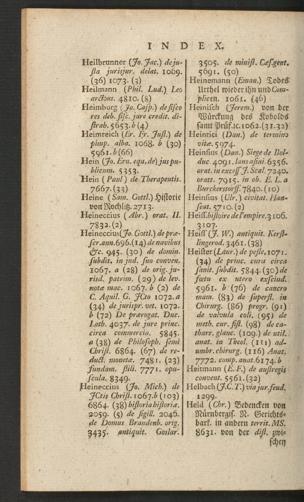 INDEX.
Heilbrunner (Jo. Jac.) de ju-
sta juristjur. delat. 1009.
(36) 1073. (3)
Heilmann (Phil. Lud.) Leo
arctous. 4810. (8)
Heimburg (Jo. Casp.) de fisco
res deb. fisc. jure credit. di-
strab. 5653. b (4)
Heimreich (Er. Fr. Just.) de
piusp. alba. 1068. b (30)
5961. b (66)
Hein (Jo. Ern. equ. de) jus pu-
blicum. 5353.
Hein (Paul) de Therapeutis.
7667. (33)
Heine (Sam. Gottl.) Historie
von Rochlitz. 2713.
Heineccius (Abr.) orat. II.
7832. (2)
Heineccius (Jo. Gottl.) de præ-
fer. ann. 696. (14) de navibus
&c. 945. (30) de domin.
subdit. in jud. suo conven.
1067. a (28) de orig. ju-
risd. patrim. (29) de lev.
notæ mac. 1067. b (2) de
C. Aquil. G. JCto 1072. a
(34) de jurispr. vet. 1072.
b (72) De prærogat. Duc.
Loth. 4037. de jure princ.
circa commercia. 5845.
a (38) de Philosoph. semi
Christ. 6864. (67) de re-
duct. monetæ. 7481. (23)
fundam. stili. 7771. opu-
scula. 8349.
Heineccius (Jo. Mich.) de
JCtis Christ. 1067. b (103)
6864. (38) historia historiæ.
2059. (5) de sigill. 2046.
de Domus Brandenb. orig.
3435. antiquit. Goslar.
3505. de minist. Cæs. gent.
5691. (50)
Heinemann (Eman.) Todes
Urthel wieder ihn und Com-
plicen. 1061. (46)
Heinisch (Jerem.) von der
Würckung des Kobolds
samt Prüf. ic. 1062. (32. 33)
Heinrici (Dan.) de termino
vitæ. 5974.
Heinsius (Dan.) Siege de Bol-
duc 4091. laus asini. 6356.
orat. in excess. J. Scal. 7240.
orat. 7915. in ob. E. L. a
Burckersrorff. 7840. (10)
Heinsius (Ulr.) exitat. Han-
soat. 5710. (2)
Heiss, histoire de l'empire. 3106.
3107.
Heiß (J. W.) antiquit. Kerst-
lingerod. 3461. (38)
Heister (Laur.) de peste. 1071.
(34) de princ. cura circa
sanit. subdit. 5844. (30) de
fœtu ex utero exscind.
5961. b (76) de cancro
mam. (83) de superst. in
Chirurg. (86) progr. (91)
de valvula coli, (95) de
meth. cur. fist. (98) de ca-
tharr. glanc. (109.) de util.
anat. in Theol. (111) ad-
minic. chirurg. (116) Anat.
7772. comp. anat. 8174. b
Heitmann (E. F.) de austregis
convent. 5561. (32)
Helbach (J. C. T.) via jur. feud.
1299.
Held (Chr.) Bedencken von
Nürnbergis. N. Gerichts-
bark. in andern territ. MS.
8631. von der dist. zwi-
schen